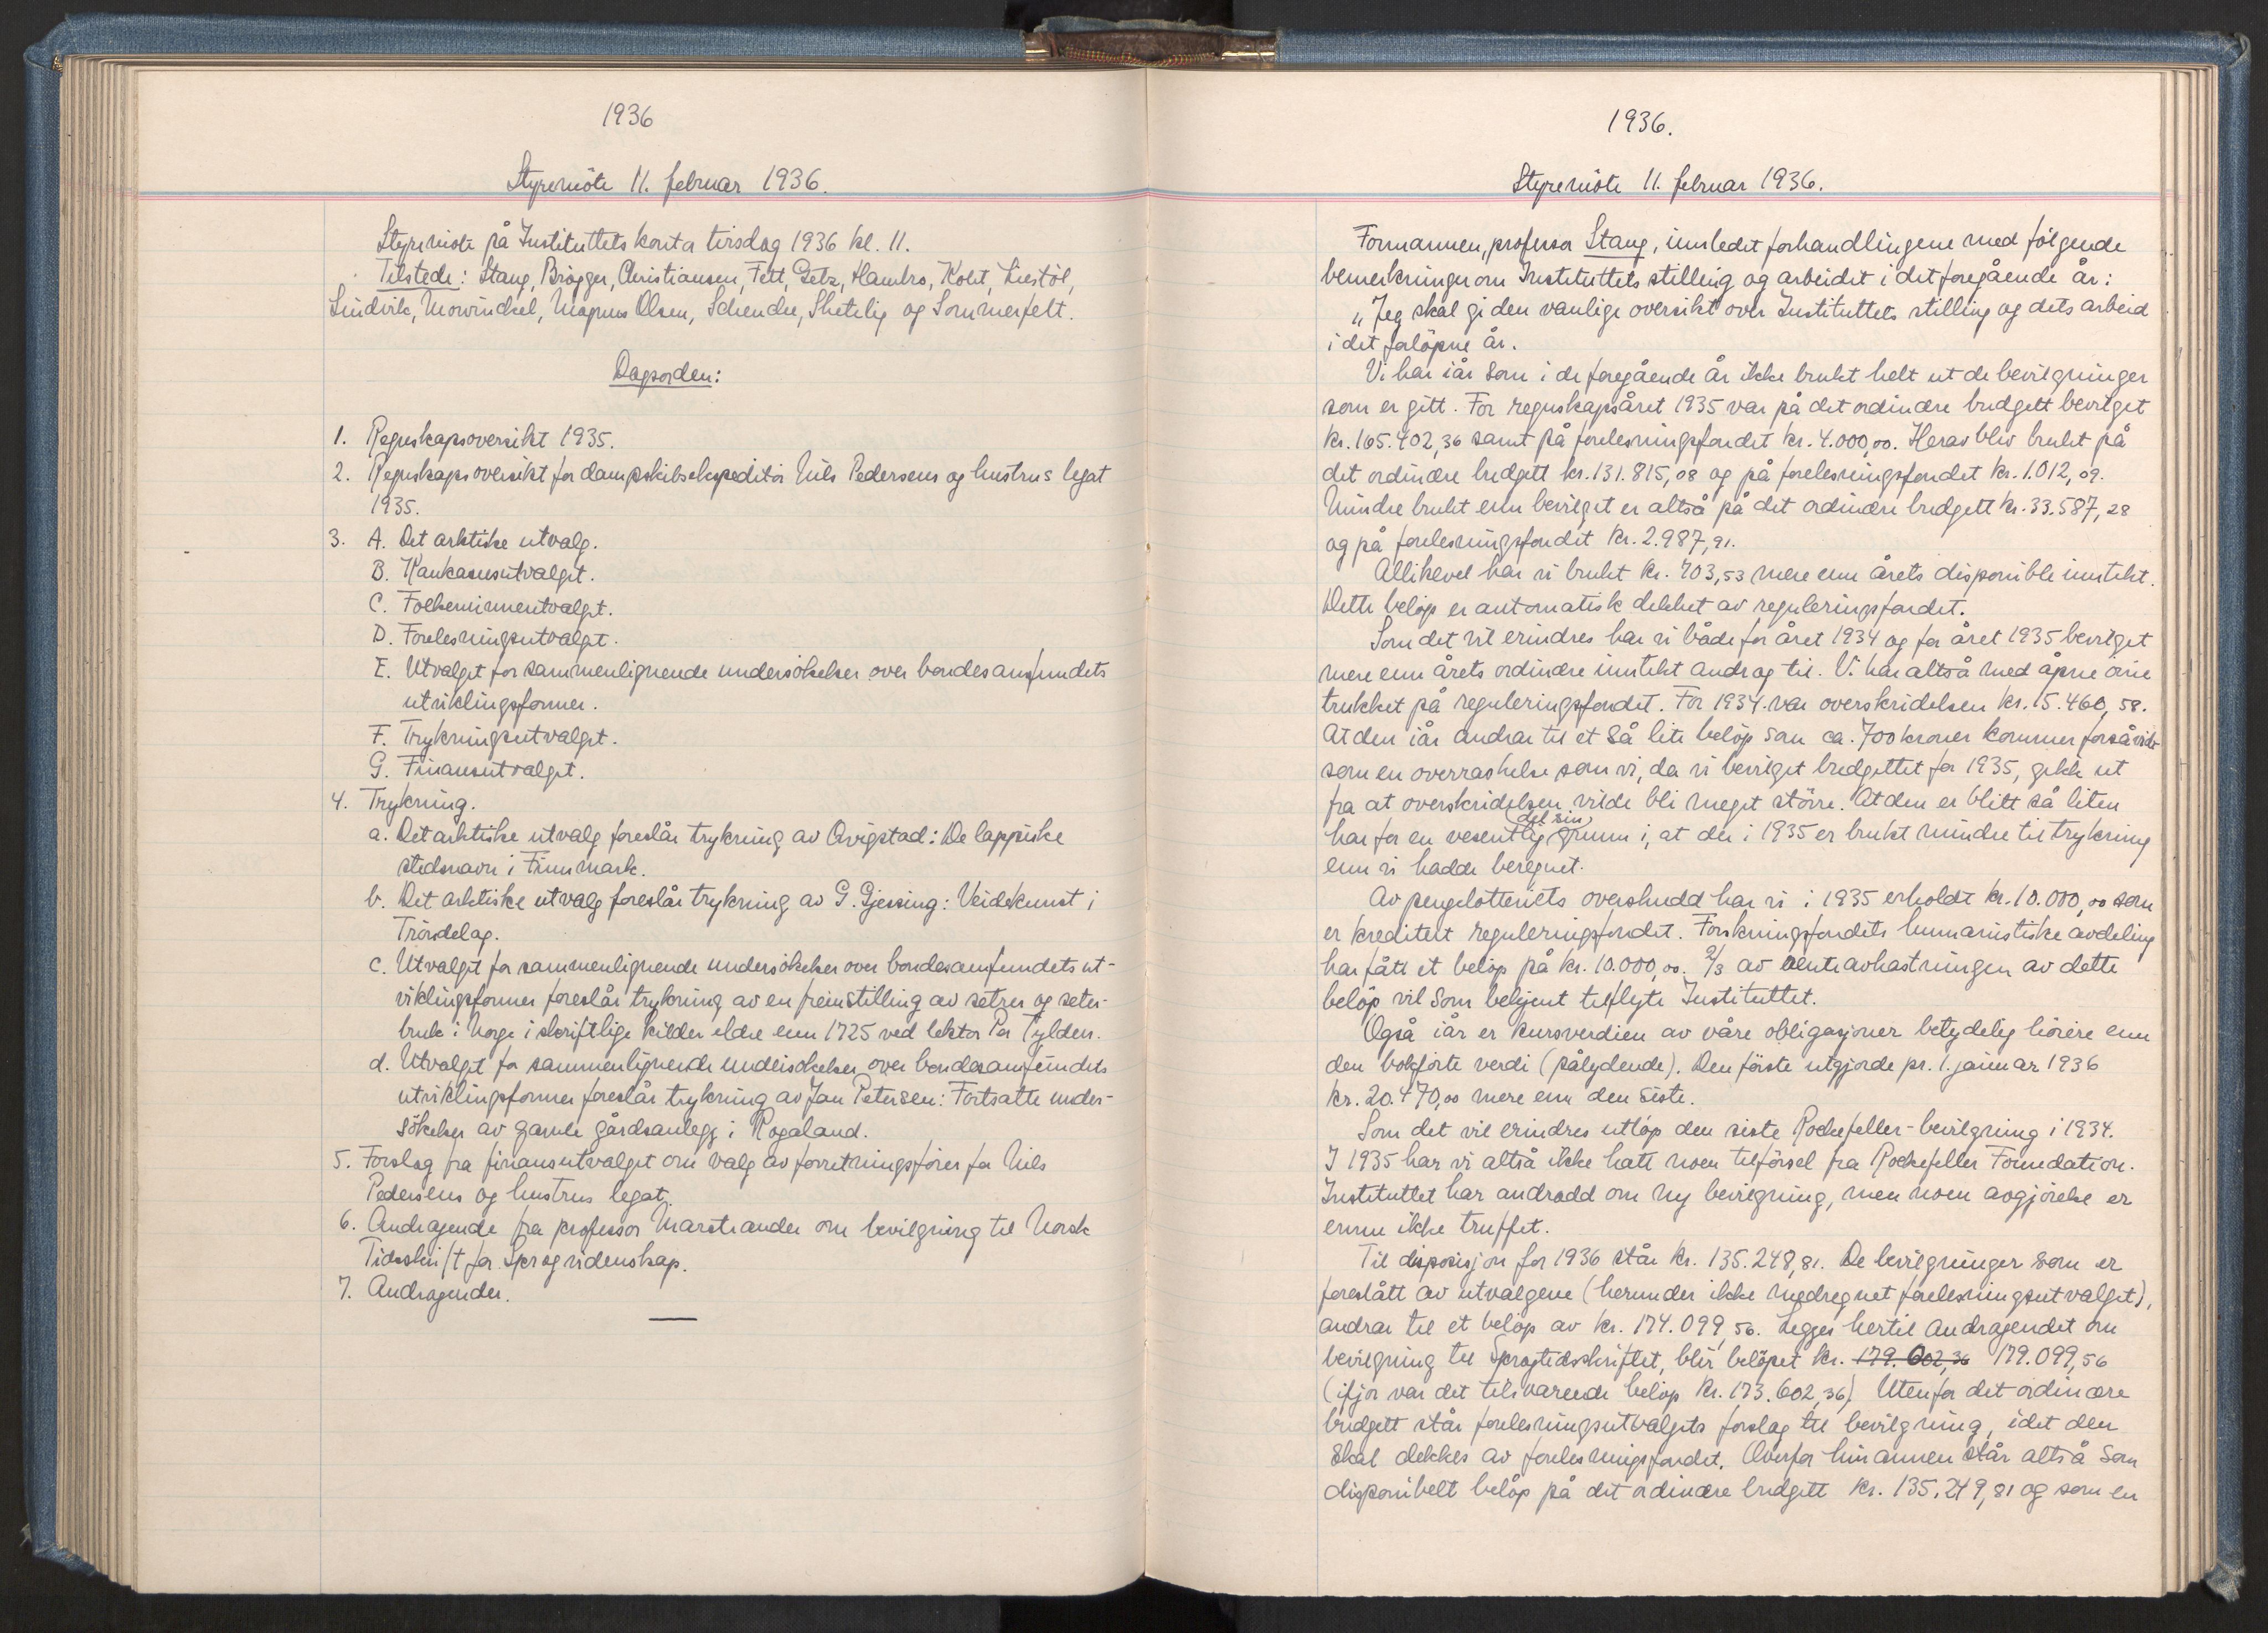 1936
Styremöte 11. februar 1936.
Styremöte på Instituttets kontor tirsdag 1936 kl. 11.
Tilstede: Stang, Brøgger, Christiansen, Fett, Getz, Hambro, Koht, Liestöl,
Lindvik, Mowinckel, Magnus Olsen, Schencke, Shetelig og Sommerfelt.
Dagsorden:
1. Regnskapsoversikt 1935.
2. Regnskapsoversikt for dampskibsekspeditör Nils Pedersens og hustrus legat
1935.
3. A. Det arktiske utvalg.
B. Kaukasusutvalget.
C. Folkeminneutvalget.
D. Forelesningsutvalget.
E. Utvalget for sammenlignende undersökelser over bondesamfundets
utviklingsformer.
F. Trykningsutvalget.
G. Finansutvalget.
4. Trykning.
a. Det arktiske utvalg foreslår trykning av Qvigstad: De lappiske
stedsnavn i Finnmark.
b. Det arktiske utvalg foreslår trykning av G. Gjessing: Veidekunst i
Tröndelag.
c. Utvalget for sammenlignende undersökelser over bondesamfundets ut-
viklingsformer foreslår trykning av en freinstilling av setrer og seter-
bruk i Norge i skriftlige kilder eldre enn 1725 ved lektor Per Tylden.
d. Utvalget for sammenlignende undersökelser over bondesamfundets
utviklingsformer foreslår trykning av Jan Petersen: Fortsatte under-
sökelser av gamle gårdsanlegg i Rogaland.
5. Forslag fra finansutvalget om valg av forretningsförer for Nils
Pedersens og hustrus legat.
6. Andragende fra professor Marstrander om bevilgning til Norsk
Tidsskrift for Sprogvidenskap.
7. Andragender.
1936.
Styremöte 11. februar 1936.
Formannen, professor Stang, innledet forhandlingene med fölgende
bemerkninger om Instituttets stilling og arbeidet i det foregående år:
"Jeg skal gi den vanlige oversikt over Instituttets stilling og dets arbeid
i det forlöpne år.
Vi har iår som i de foregående år ikke brukt helt ut de bevilgninger
som er gitt. For regnskapsåret 1935 var på det ordinære budgett bevilget
kr. 165.402,36 samt på forelesningsfondet kr. 4.000,00. Herav blev brukt på
det ordinære budgett kr. 131.815,08 og på forelesningsfondet kr. 1.012,09.
Mindre brukt enn bevilget er altså på det ordinære budgett kr. 33.587,28
og på forelesningsfondet kr. 2.987,91.
Allikevel har vi brukt kr. 703,53 mere enn årets disponible inntekt.
Dette belöp er automatisk dekket av reguleringsfondet.
Som det vil erindres har vi både for året 1934 og for året 1935 bevilget
mere enn årets ordinære inntekt androg til. Vi har altså med åpne öine
trukket på reguleringsfondet. For 1934 var overskridelsen kr. 15.460,58.
At den iår andrar til et så lite belöp som ca. 700 kroner kommer forsåvidt
som en overraskelse som vi, da vi bevilget budgettet for 1935, gikk ut
fra at overskridelsen vilde bli meget större. At den er blitt så liten
har for en vesentlig del sin grunn i, at der i 1935 er brukt mindre til trykning
enn vi hadde beregnet.
Av pengelotteriets overskudd har vi i 1935 erholdt kr. 10.000,00 som
er kreditert reguleringsfondet. Forskningsfondets humanistiske avdeling
har fått et belöp på kr. 10.000,00. 2/3 av renteavkastningen av dette
belöp vil som bekjent tilflyte Instituttet.
Også iår er kursverdien av våre obligasjoner betydelig höiere enn
den bokförte verdi (pålydende). Den förste utgjorde pr. 1. januar 1936
kr. 20.470,00 mere enn den siste.
Som det vil erindres utlöp den siste Rockefeller-bevilgning i 1934.
I 1935 har vi altså ikke hatt noen tilförsel fra Rockefeller Foundation.
Instituttet har andradd om ny bevilgning, men noen avgjörelse er
ennu ikke truffet.
Til disposisjon for 1936 står kr. 135.248,81. De bevilgninger som er
foreslått av utvalgene (herunder ikke medregnet forelesningsutvalget),
andrar til et belöp av kr. 174.099,56. Legges hertil andragendet om
bevilgning til Sprogtidsskriftet, blir belöpet kr. 179.602,36 179.099,56
(ifjor var det tilsvarende belöp kr. 173.602,36). Utenfor det ordinære
budgett står forelesningsutvalgets forslag til bevilgning, idet den
skal dekkes av forelesningsfondet. Overfor hinannen står altså som
disponibelt belöp på det ordinære budgett kr. 135.249,81 og som en